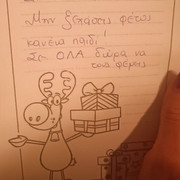 Μην ξεχάσεις φέτος
κανένα παιδί!
Σε ΟΛΑ δώρα να
τους φέρεις